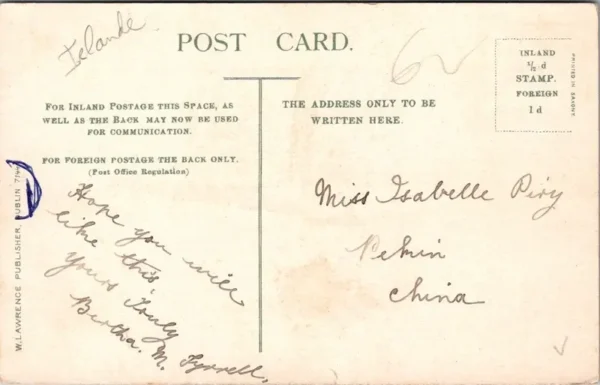 Irlande
POST CARD.
62
INLAND
½ d
STAMP.
FOREIGN
1 d
PRINTED IN SAXONY
FOR INLAND POSTAGE THIS SPACE, AS
WELL AS THE BACK MAY NOW BE USED
FOR COMMUNICATION.
FOR FOREIGN POSTAGE THE BACK ONLY.
(Post Office Regulation)
THE ADDRESS ONLY TO BE
WRITTEN HERE.
W. LAWRENCE PUBLISHER, DUBLIN
Hope you will
like this
Yours Truly
Bertha. M. Tyrrell.
Miss Isabelle Piry
Pekin
China